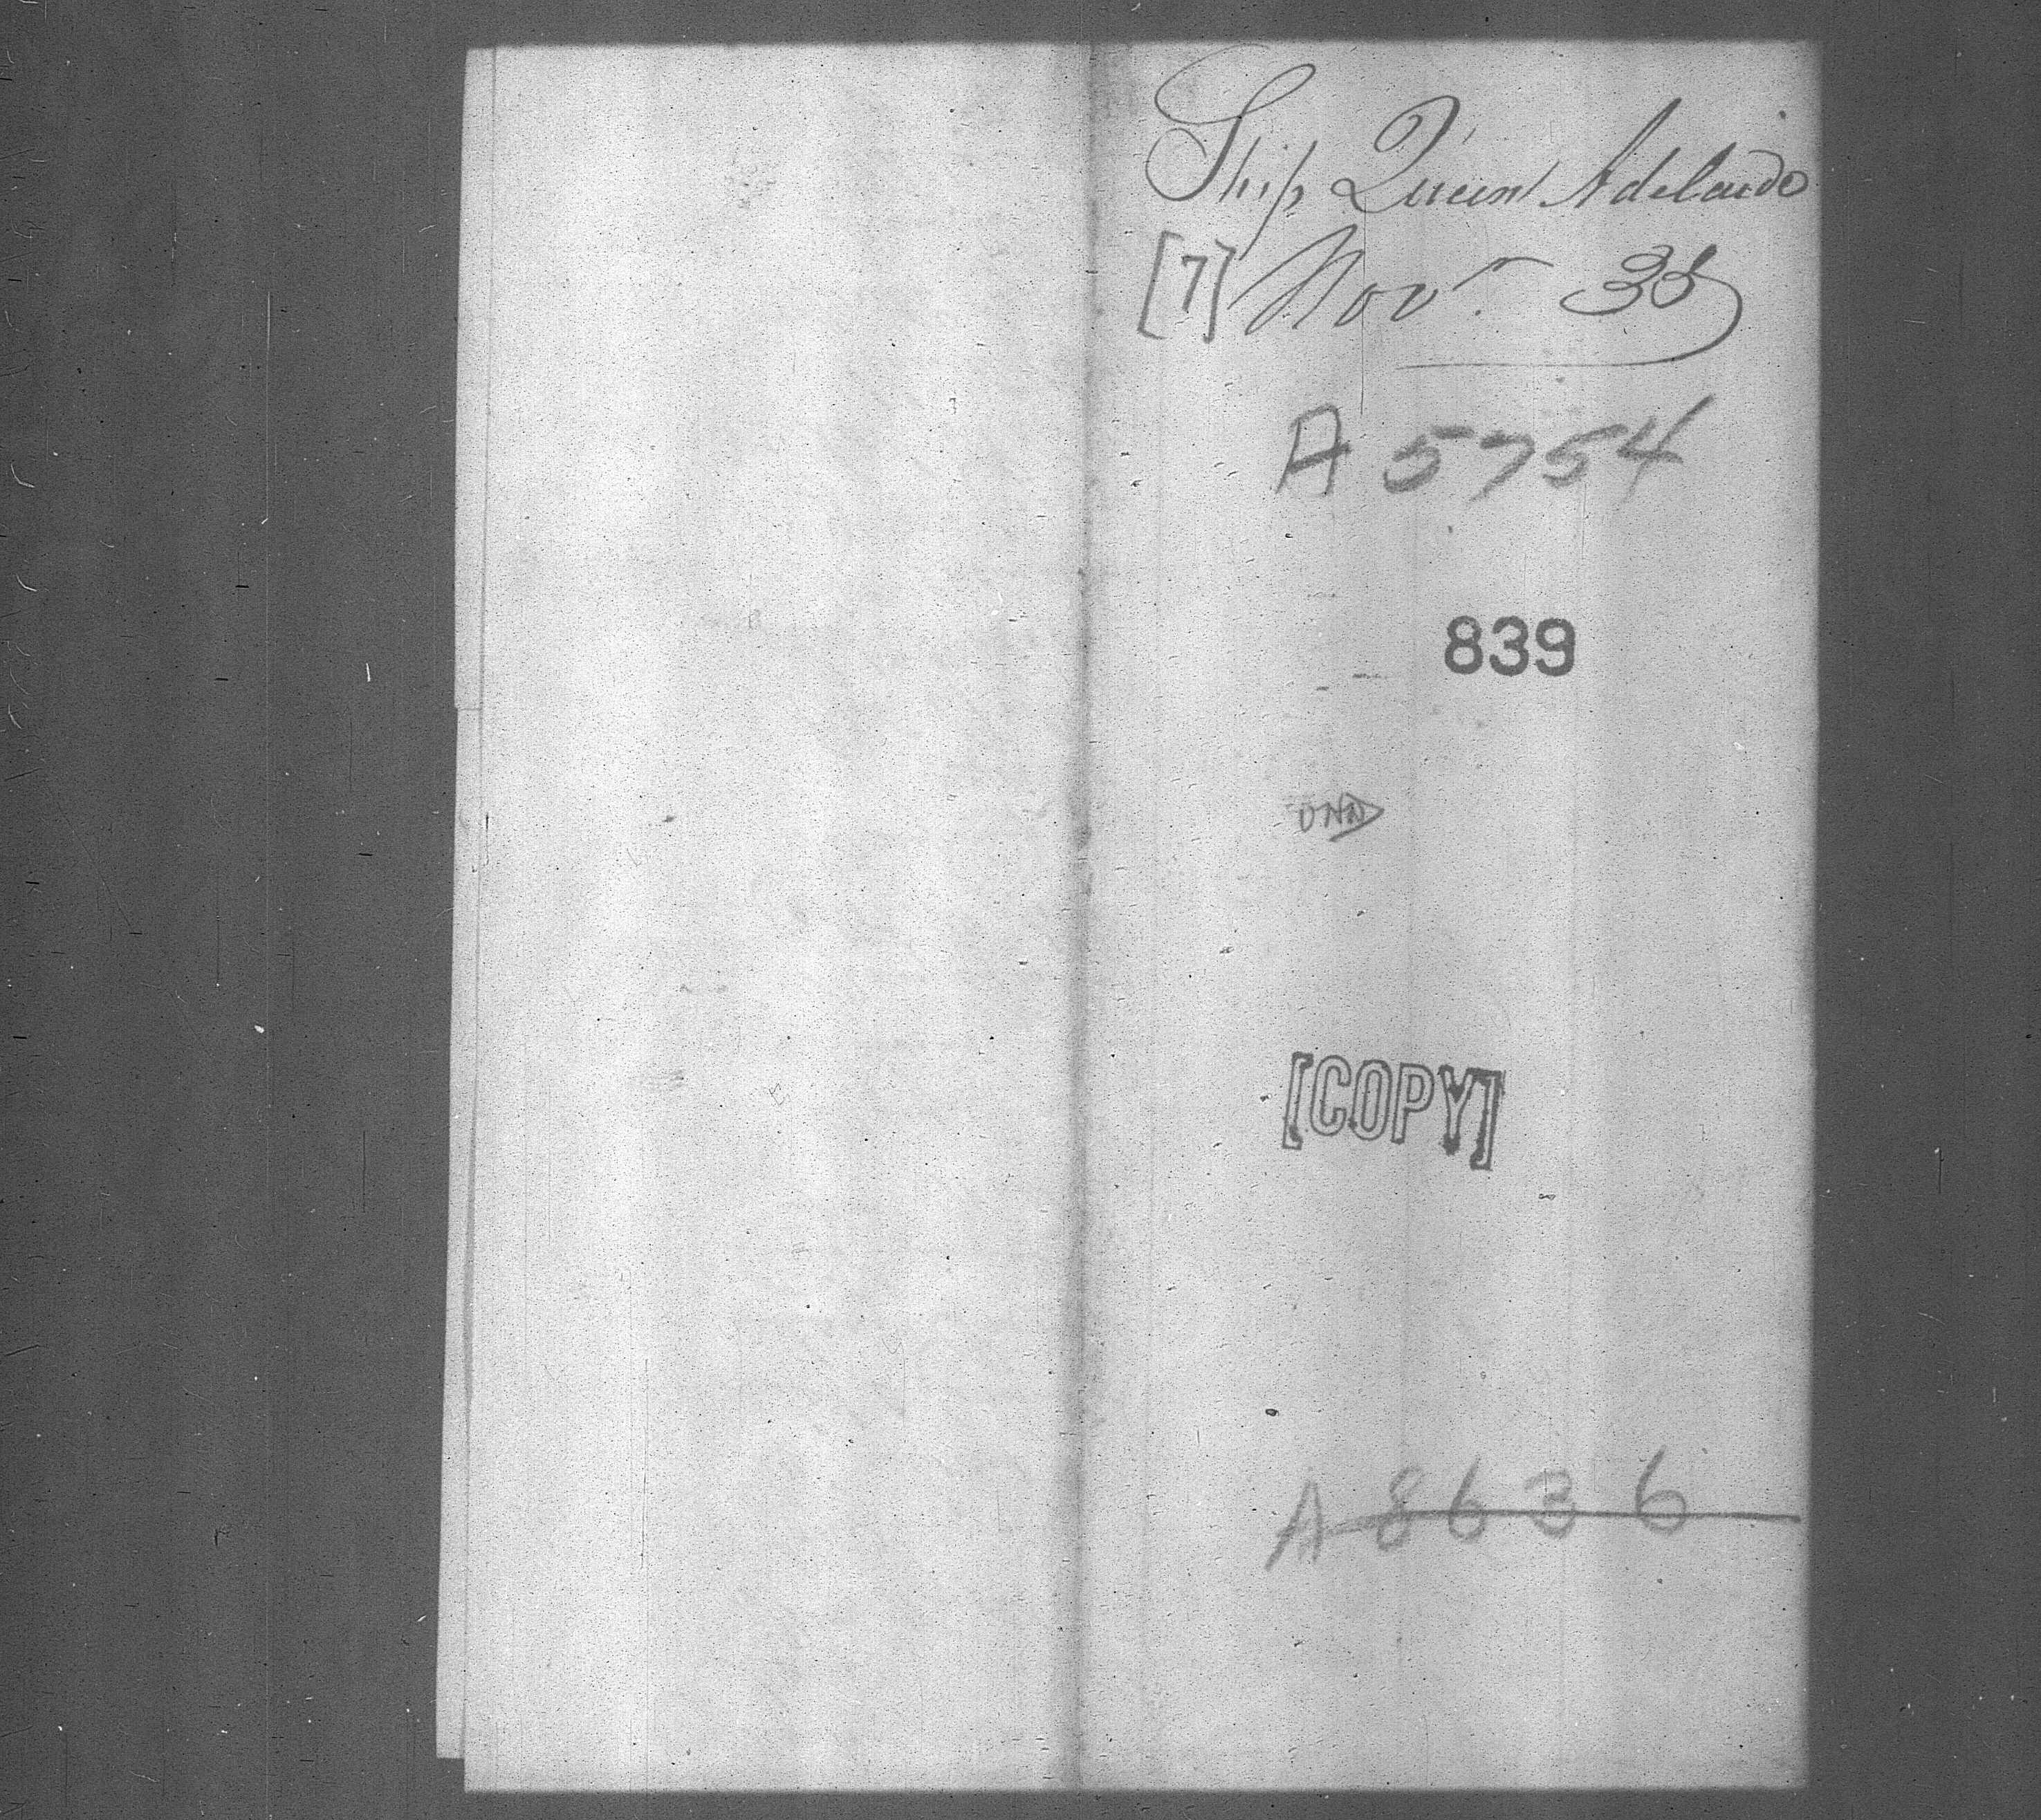 Ship Queen Adelaide
[7] Novr. 38
A 5754
839
[COPY]
A 8636